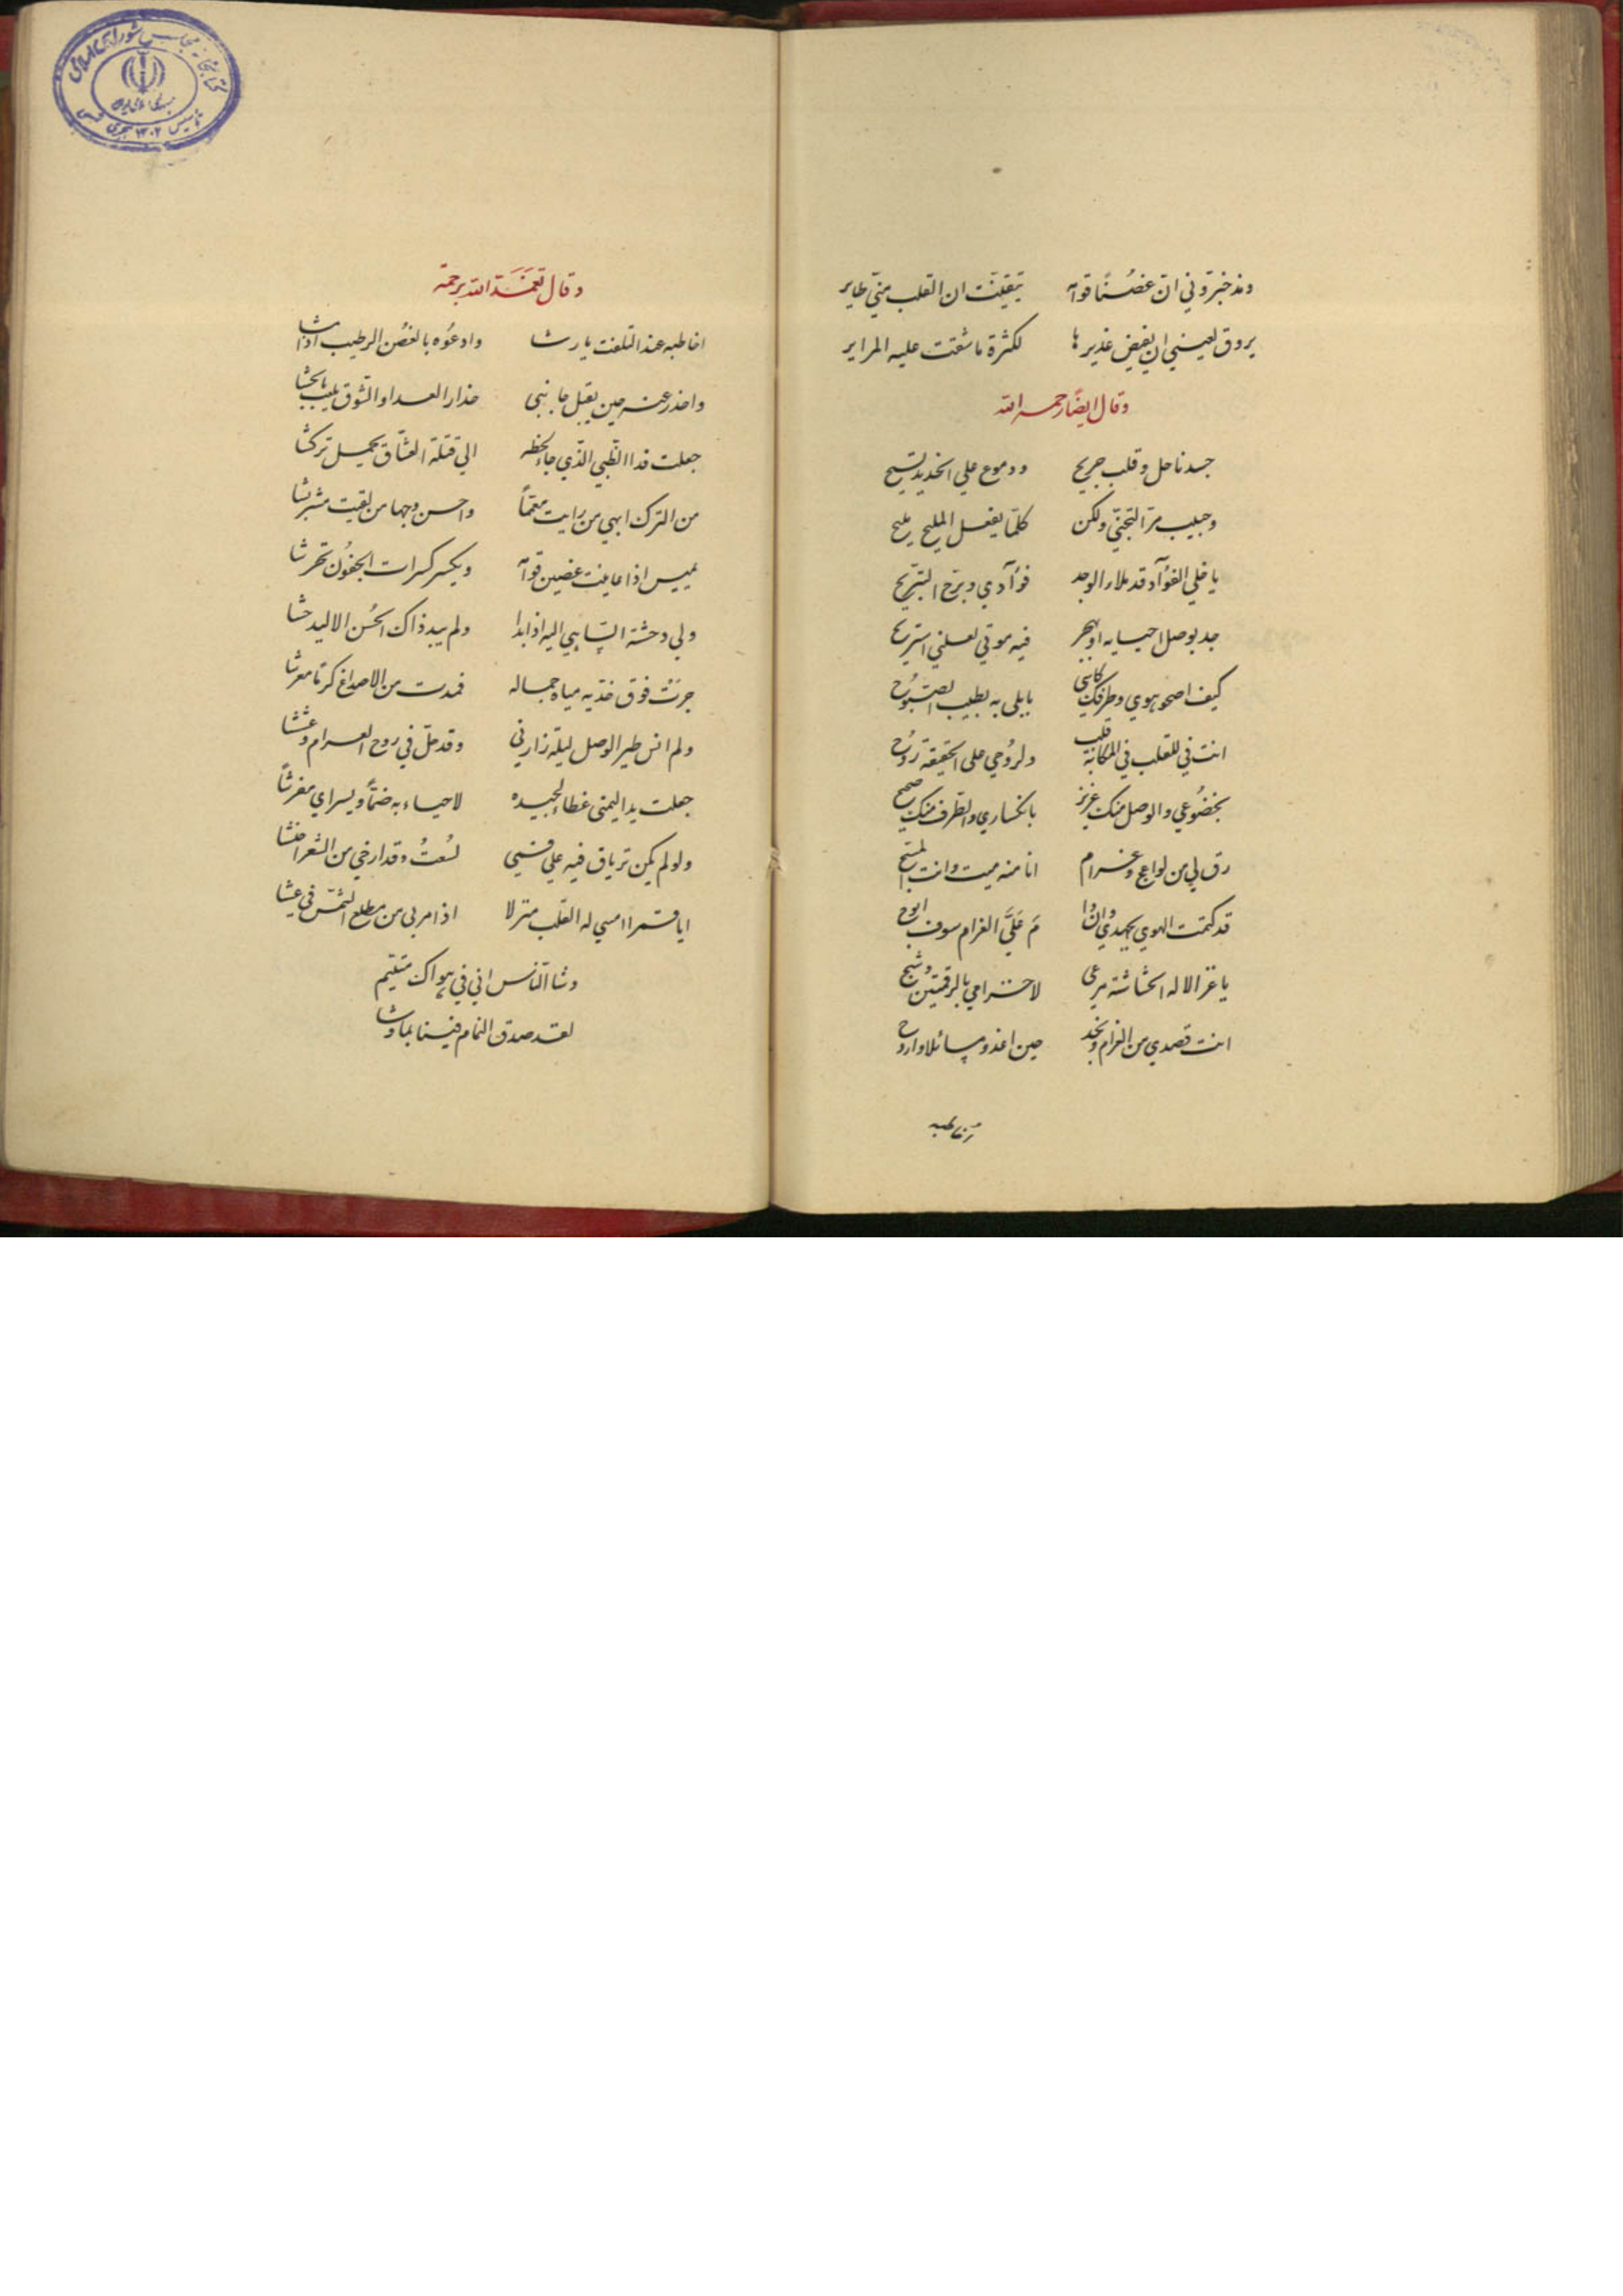 ومذ خبروني ان غصنًا قوامه تيقنت ان القلب مني طاير
يروق لعيني ان يفيض غديرها لكثرة ما شقت عليه المراير
وقال ايضًا رحمه الله
جسد ناحل وقلب جريح ودموع علي الخديد تسيح
وحبيب مرّ التجنّي ولكن كلّما يفعل المليح مليح
يا خلي الفوآد قد ملاء الوجد فوآدي وبرّح التبريح
جد بوصل احيا به او بهجر فيه موتي لعلني استريح
كيف اصحو هوي وطرفك كاسي بابلي به يطيب الصبوح
انت في للقلب في المكانة قلب ولروحي علي الحقيقة روح
بخضوعي والوصل منك عزيز بانكساري والطرف منك صحيح
رق لي من لواعج وغرام انا منه ميت وانت المسيح
قد كتمت الهوي بجهدي وان دا مَ عَليَّ الغرام سوف ابوح
يا غزالا له الحشاشة مرعي لا خزامي بالرقمتين وشيح
انت قصدي من الغرام ونجد حين اغدو مسائلا واروح
اخاطبه
وقال تغمّده الله برحمته
اخاطبه عند التلفت يا رشا وادعوُه بالغصُن الرطيب اذا مشا
واحذر عنه حين يقبل جانبي حذار العدا والشوق يلعب بالحشا
جعلت فدا الظبي الذي جاء لحظه الي قتلة العشّاق بجميل تركشا
من الترك ابهي من رايت معممًا واحسن وجها من لقيت مشربشا
يميس اذا عاينت غصين قوامه ويكسر كسرات الجفوُن تحرشا
ولي دحشة الساهي اليه اذا بدا ولم يبد ذاك الحُسن الا ليدحشا
جرَتْ فوق خدّيه مياه جماله فمدت من الاصداغ كرمًا معرشا
ولم انس طير الوصل ليلة زارني وقد حلّ في روح الغرام وعششا
جعلت يد اليمنى غطاء لجيده لاحياء به ضمّاً ويسراي مفرشاً
ولو لم يكن ترياق فيه علي فمي لسُعتُ وقد ارخي من الشعر احنشا
ايا قمرا امسي له القلب منزلا اذا مر بي من مطلع الشمس في عشا
وشا النّاس اني في هواك متيّم
لقد صدق النمام فينا بما وشا